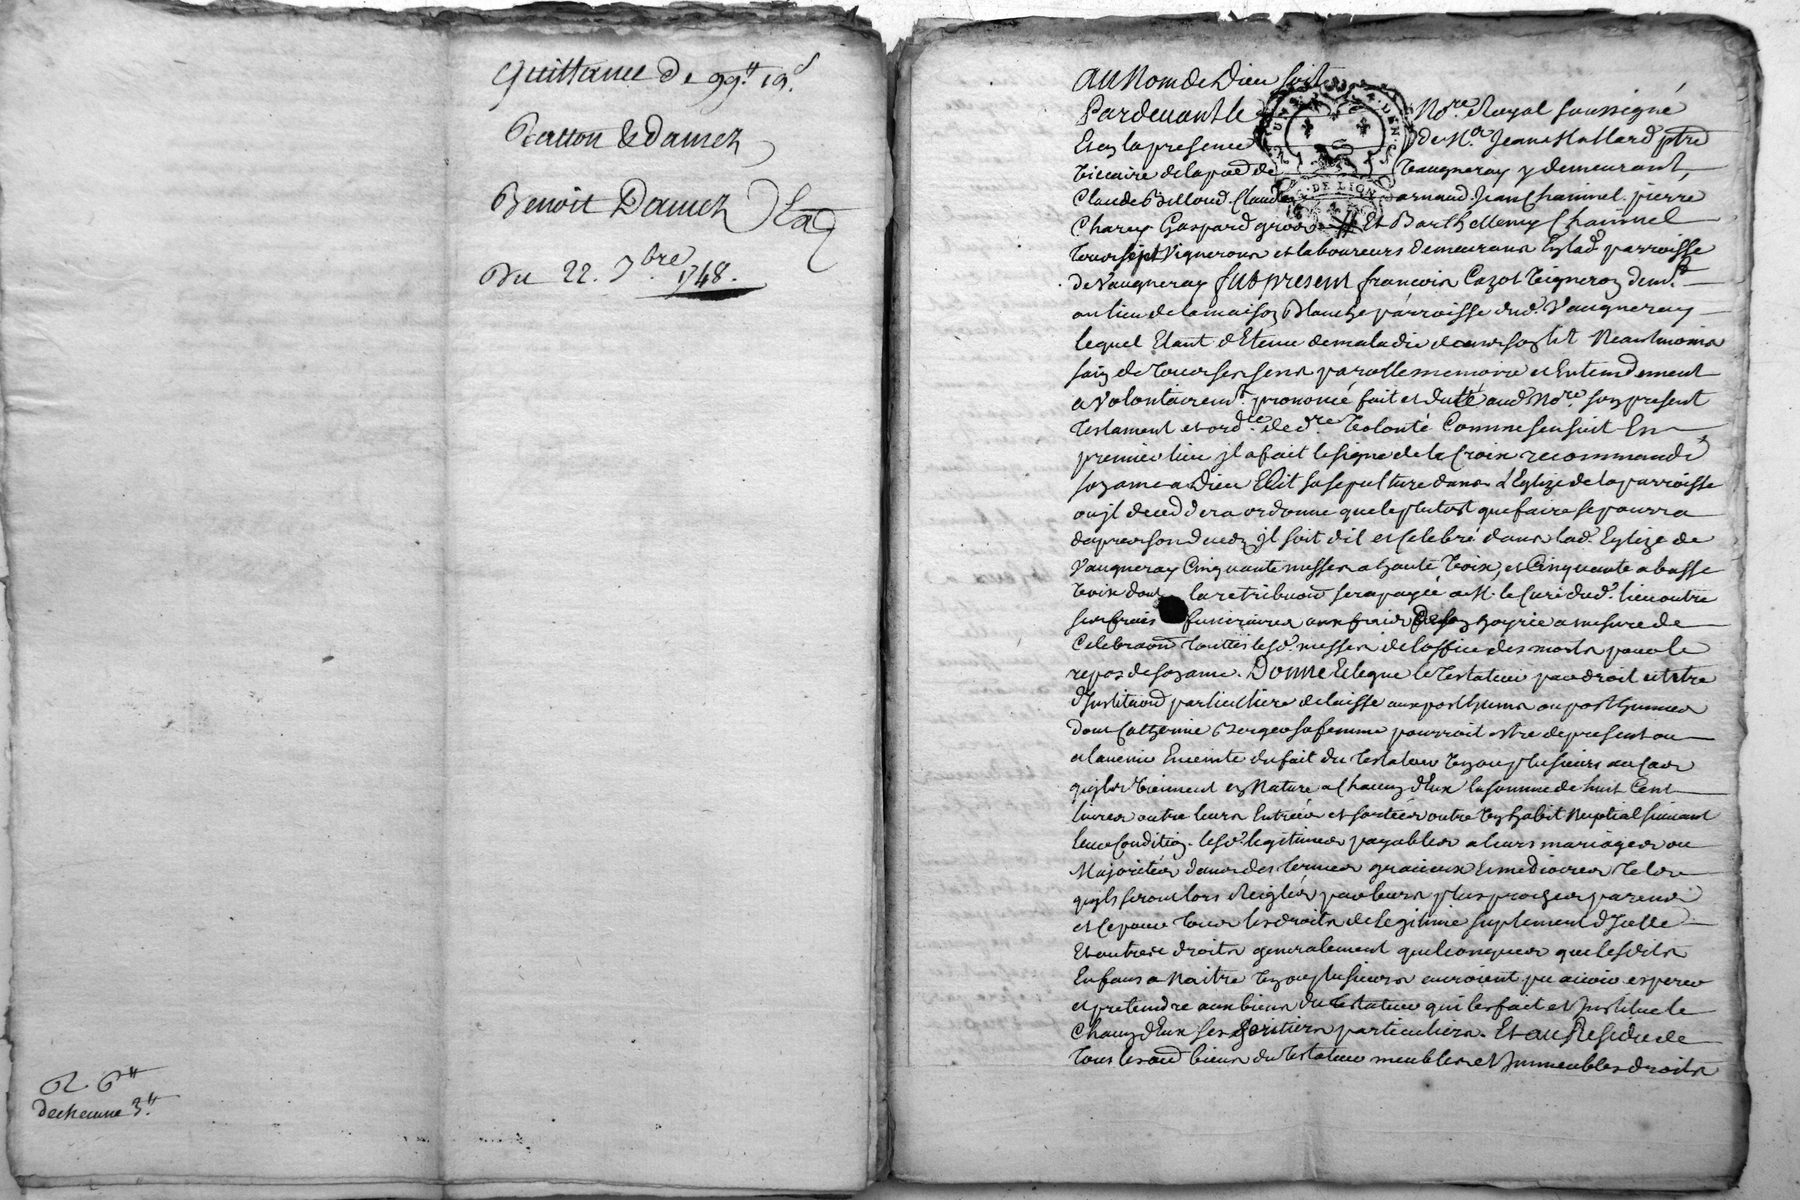 Quittance de 99.tt 19.s
Ratton & Damez
Benoit Damez
Du 22. 7bre 1748.
R 6tt
dechacune 3.tt
AU Nom de Dieu soit
Pardevant le Nore. Royal soussigné
Et en la presence de Mr. Jean Hallard ptre
Vicaire de la pae de Vaugneray y demeurant,
Claude Billoud Claude arnaud Jean Chammel pierre
Charey Gaspard gros Et Barthellemy Chammel
tous sept Vignerons et laboureurs demeurans En lad. parroisse
de Vaugneray fut present francois Cazot Vigneron demt.
au lieu de la maison Blanche parroisse dud. Vaugneray
lequel Etant detenu de maladie dans son lit Neantmoins
sain de tous ses sens parolle memoire et Entendement
a Volontairemt. prononcé fait et dicté aud. Nore. son present
testament et ordce. de dre. Volonté Comme sensuit En
premier lieu jl a fait le signe de la Croix recommandé
son ame a Dieu Elit sa sepulture dans l'Eglize de la parroisse
ou jl deceddera ordonne que le plutost que faire se pourra
dapres son deceds jl soit dit et Celebré dans lad. Eglize de
Vaugneray Cinquante messes a haute Voix, et Cinquante a basse
Voix dont la retribuon sera payée a M. le Curé dud. lieu outre
ses frais funeraires aux frais de son hoyrie a mesure de
Celebraon toutes lesd. messes de loffice des morts pour le
repos de son ame. Donne Et legue le testateur par droit et titre
d'Institaon particulliere delaisse aux posthumes ou posthumes
dont Catherine Berger sa femme pourroit estre de present ou
a lavenir Enceinte du fait du testateur Un ou plusieurs au Cas
quils Viennent En Nature a Chacun d'Eux la somme de huit Cent
livres outre leurs Entrées et sorties outre Un habit Nuptial suivant
leur Condition. lesd. legitimes payables a leurs mariages ou
Majorités dans des termes gratieux Et mediocres tels
quils seront lors Reiglés par leurs plus proches parens
et Ce pour tous les droits de legitime suplement d'Jcelle
Et autres droits generalement quelconques que lesdits
Enfans a Naitre Un ou plusieurs auroient pu avoir esperer
et pretendre aux biens du testateur qui les fait et Jnstitue le
Chacun d'Eux ses heritiers particuliers. Et au Residu de
tous les aud biens du testateur meubles et Jmmeubles droits